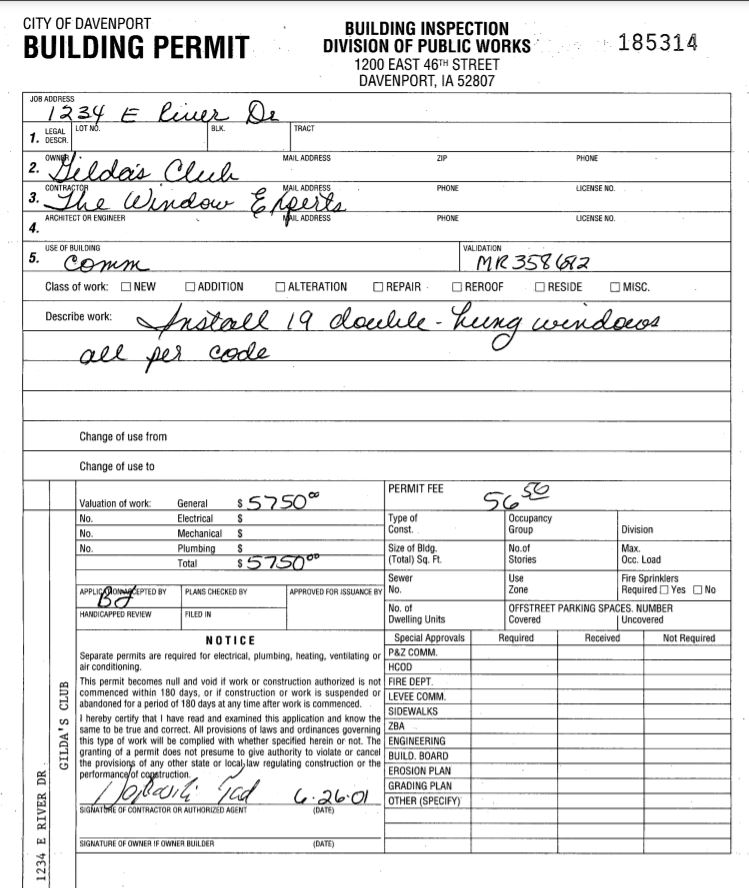 CITY OF DAVENPORT
BUILDING PERMIT
BUILDING INSPECTION
DIVISION OF PUBLIC WORKS
1200 EAST 46TH STREET
DAVENPORT, IA 52807
185314
JOB ADDRESS
1234 E River Dr
1. LEGAL DESCR. LOT NO. BLK. TRACT
2. OWNER MAIL ADDRESS ZIP PHONE
Gilda's Club
3. CONTRACTOR MAIL ADDRESS PHONE LICENSE NO.
The Window Experts
4. ARCHITECT OR ENGINEER MAIL ADDRESS PHONE LICENSE NO.
5. USE OF BUILDING VALIDATION
Comm MR358682
Class of work: NEW ADDITION ALTERATION REPAIR REROOF RESIDE MISC.
Describe work: Install 19 double-hung windows
all per code
Change of use from
Change of use to
Valuation of work: General $ 5750.00
PERMIT FEE 56 50
No. Electrical $
No. Mechanical $
No. Plumbing $
Total $ 5750.00
Type of Const. Occupancy Group Division
Size of Bldg. (Total) Sq. Ft. No. of Stories Max. Occ. Load
Sewer No. Use Zone Fire Sprinklers Required Yes No
APPLICATION ACCEPTED BY PLANS CHECKED BY APPROVED FOR ISSUANCE BY
HANDICAPPED REVIEW FILED IN
No. of Dwelling Units OFFSTREET PARKING SPACES. NUMBER
Covered Uncovered
NOTICE
Separate permits are required for electrical, plumbing, heating, ventilating or
air conditioning.
This permit becomes null and void if work or construction authorized is not
commenced within 180 days, or if construction or work is suspended or
abandoned for a period of 180 days at any time after work is commenced.
I hereby certify that I have read and examined this application and know the
same to be true and correct. All provisions of laws and ordinances governing
this type of work will be complied with whether specified herein or not. The
granting of a permit does not presume to give authority to violate or cancel
the provisions of any other state or local law regulating construction or the
performance of construction.
6-26-01
SIGNATURE OF CONTRACTOR OR AUTHORIZED AGENT (DATE)
SIGNATURE OF OWNER IF OWNER BUILDER (DATE)
Special Approvals Required Received Not Required
P&Z COMM.
HCOD
FIRE DEPT.
LEVEE COMM.
SIDEWALKS
ZBA
ENGINEERING
BUILD. BOARD
EROSION PLAN
GRADING PLAN
OTHER (SPECIFY)
1234 E RIVER DR
GILDA'S CLUB